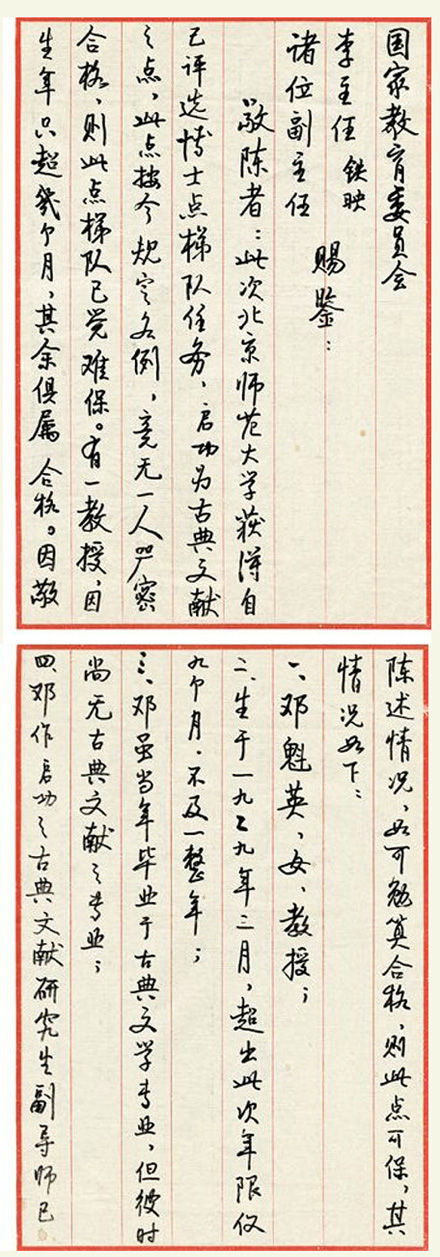 国家教育委员会
李主任 铁映
诸位副主任
赐鉴：
敬陈者：此次北京师范大学获得自
己评选博士点梯队任务，启功为古典文献
之点，此点按今规定各例，竟无一人严密
合格，则此点梯队已觉难保。有一教授，因
生年只超几个月，其余俱属合格。因敬
陈述情况，如可勉算合格，则此点可保，其
情况如下：
一、邓魁英，女，教授；
二、生于一九二九年三月，超出此次年限仅
九个月，不及一整年；
三、邓虽当年毕业于古典文学专业，但彼时
尚无古典文献之专业；
四、邓作启功之古典文献研究生副导师已